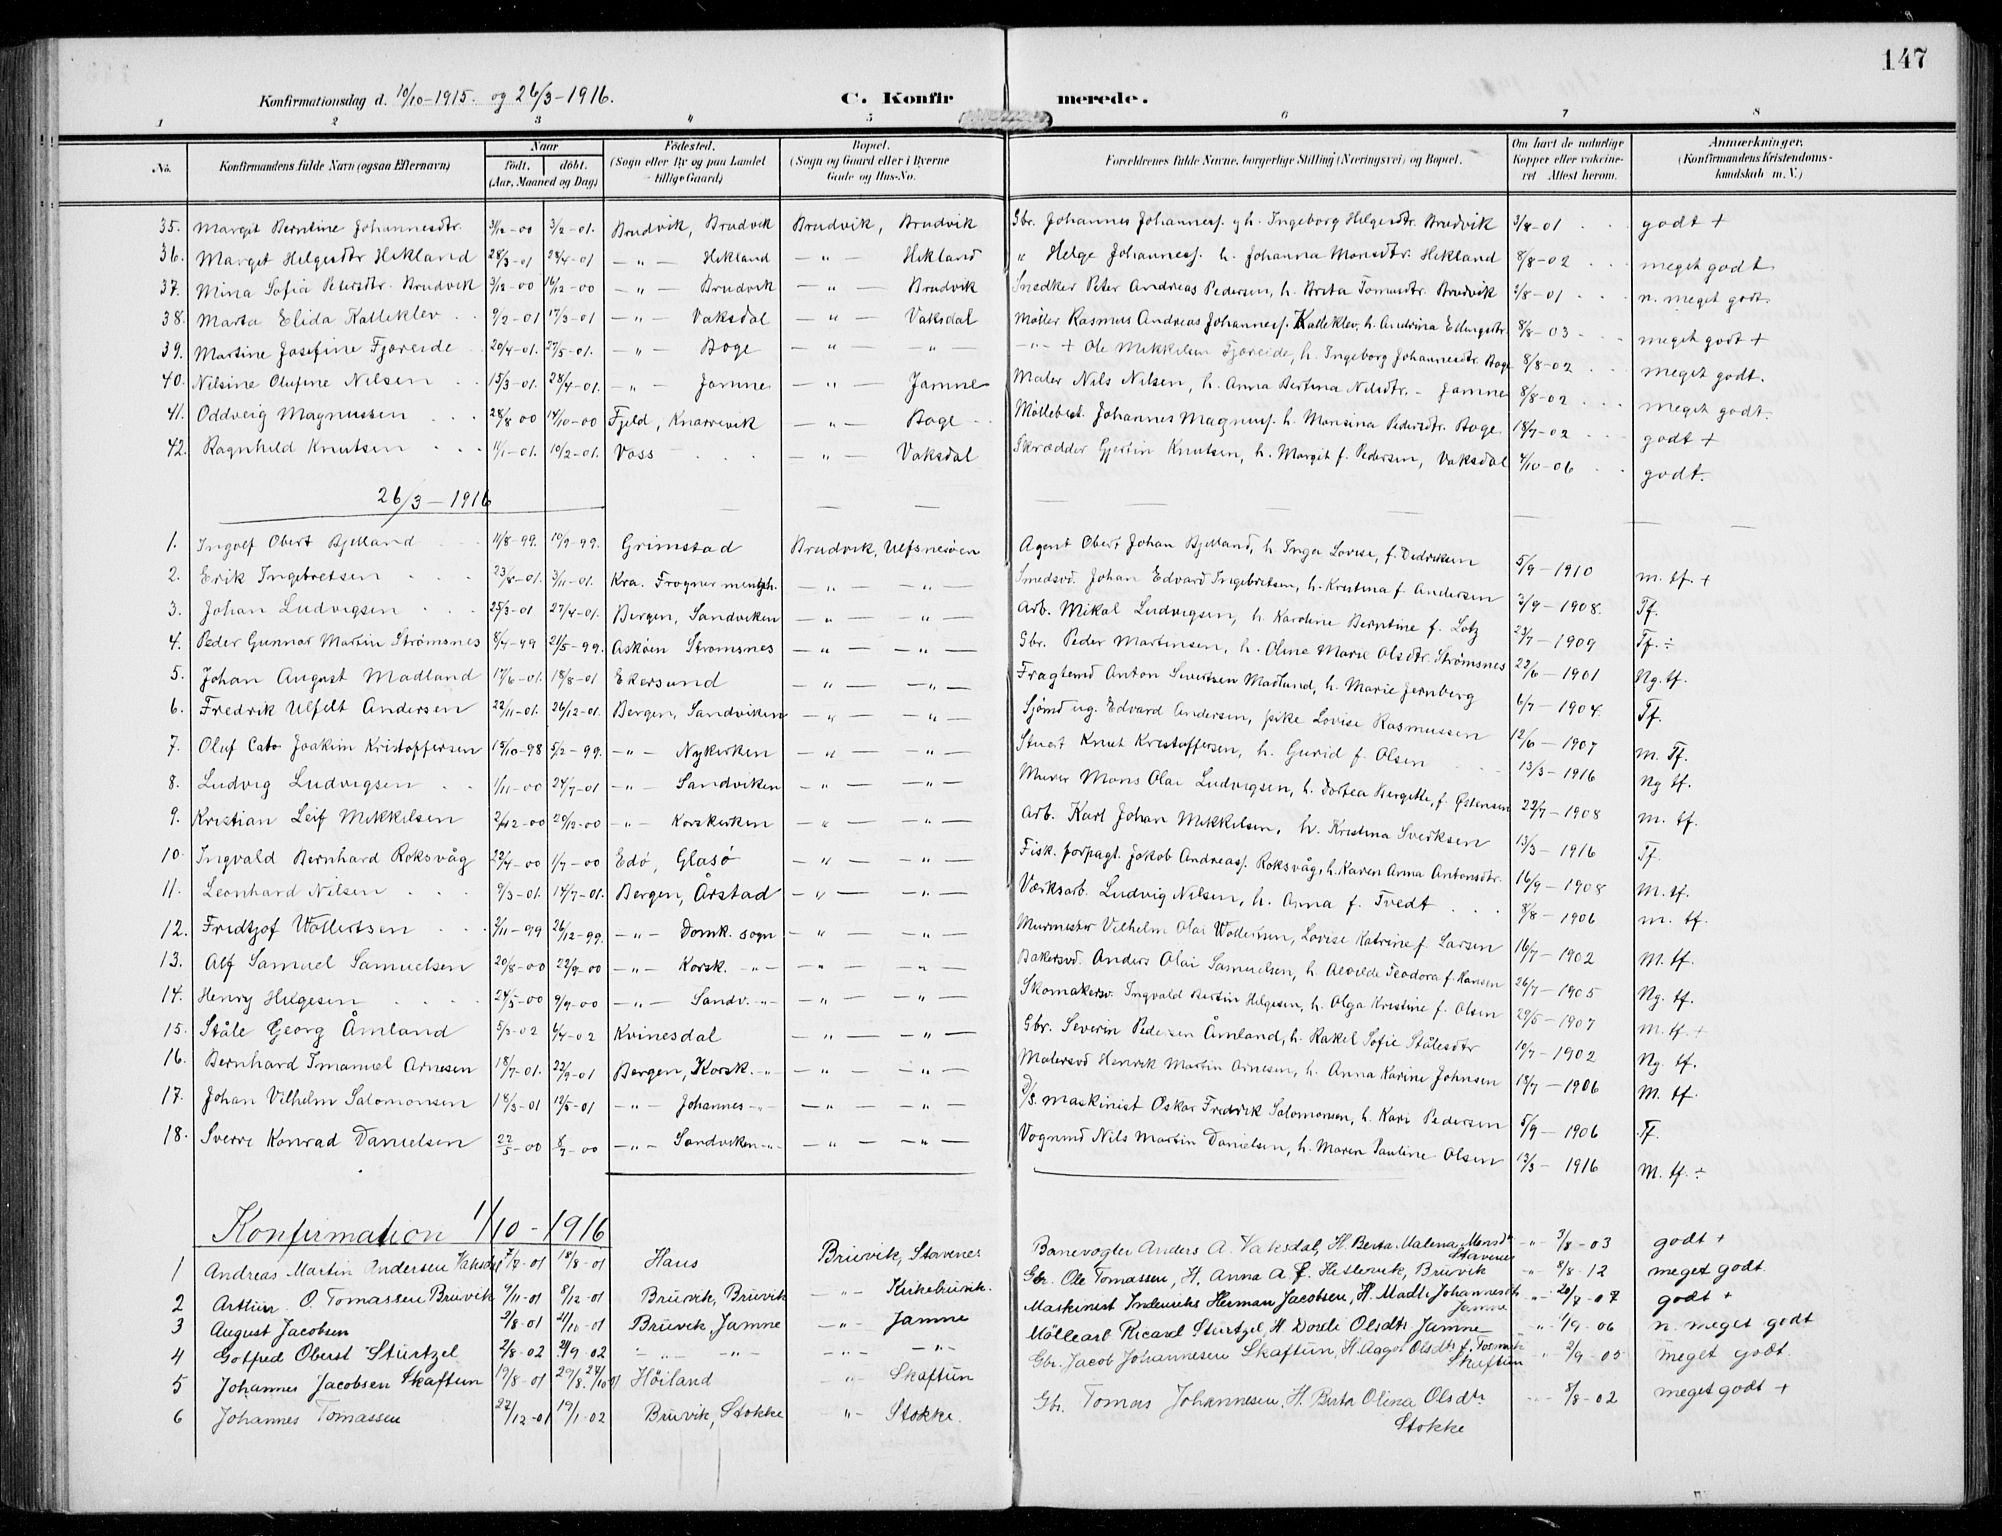 147
Konfirmationsdag d. 10/10-1915. og 26/3-1916. C. Konfirmerede.
1 2 3 4 5 6 7 8
No. Konfirmandens fulde Navn (ogsaa Efternavn) Naar født. døbt. (Aar, Maaned og Dag) Fødested. (Sogn eller By og paa Landet tillige Gaard) Bopæl. (Sogn og Gaard eller i Byerne Gade og Hus-No. Forældrenes fulde Navne, borgerlige Stilling (Næringsvei) og Bopæl. Om havt de naturlige Kopper eller vakcineret Attest herom. Anmærkninger. (Konfirmandens Kristendomskundskab m. V.)
35. Margit Berntine Johannesdtr. 31/12-00 3/2-01. Brudvik, Brudvik Brudvik, Brudvik Gbr. Johannes Johanness. g h. Ingeborg Helgesdtr. Brudvik 3/8-01 godt +
36. Margit Helgesdtr Hekland 28/3-01 28/4-01 -"- Hekland -"- Hekland " Helge Johanness. h. Johanna Monsdtr. Hekland 8/8-02 meget godt
37. Mina Sofie Petersdtr. Brudvik 3/12-00 16/12-00 -"- Brudvik -"- Brudvik Snedker Peter Andreas Pedersen, h. Brita Tomasdtr. Brudvik 2/8-01 n. meget godt.
38. Marta Elida Katleklev 9/2-01 17/3-01 -"- Vaksdal -"- Vaksdal Møller Rasmus Andreas Johanness. Katleklev, h. Andrina Ellingsdtr. 8/8-03 meget godt +
39. Martine Josefine Fjæreide 20/4-01. 27/5-01. -"- Boge -"- -"- -"- + Ole Mikkelsen Fjæreide, h. Ingeborg Johannesdtr. Boge 8/8-02 meget godt.
40. Nilsine Olufine Nilsen 15/3-01. 28/4-01. -"- Jamne -"- Jamne Maler Nils Nilsen, h. Anna Bertina Nilsdtr. - Jamne 8/8-02 meget godt.
41. Oddveig Magnussen 28/8 00 14/10-00 Fjeld, Knarrevik -"- Boge Møllebest. Johannes Magnuss. h. Monsina Pedersdtr. Boge 18/7-02 godt +
42. Ragnhild Knutsen 1/1-01. 10/2-01. Voss -"- Vaksdal Skrædder Gjertin Knutsen, h. Margit f. Pedersen, Vaksdal 4/10-06 godt.
26/3-1916
1. Ingolf Obert Bjelland 11/8-99. 10/9-99. Grimstad Brudvik, Ulfsnesøen Agent Obert Johan Bjelland, h. Inga Lovise, f. Didriksen 5/9-1910 m. tf. +
2. Erik Ingebretsen 23/8-01. 3/11-01. Kra. Frogner menigh. -"- -"- Smedsvd. Johan Edvard Ingebretsen, h. Kristina f. Andersen 3/9-1908. Tf.
3. Johan Ludvigsen 25/3-01 27/4-01. Bergen, Sandviken -"- -"- Arb. Mikal Ludvigsen, h. Karoline Berntine f. Lotz 23/7-1909 Tf. ÷
4. Peder Gunnar Martin Strømsnes 8/4-99 21/5-99. Askøen Strømsnes -"- -"- Gbr. Peder Martinsen, h. Oline Marie Olsdtr. Strømsnes 22/6-1901 Ng. tf.
5. Johan August Madland 17/6-01. 18/8-01 Ekersund -"- -"- Fragtemd Anton Sivertsen Madland, h. Marie Jernberg 6/7-1904. Tf.
6. Fredrik Ulfelt Andersen 22/11-01. 26/12-01. Bergen, Sandviken -"- -"- Sjømd ug. Edvard Andersen, pike Lovise Rasmussen 12/6-1907 m. Tf.
7. Oluf Cato Joakim Kristoffersen 15/10-98 5/2-99. -"- Nykerken -"- -"- Stuert Knut Kristoffersen, h. Gurid f. Olsen 13/3-1916 Ng tf.
8. Ludvig Ludvigsen 1/11-00 24/7-01 -"- Sandviken -"- -"- Murer Mons Olai Ludvigsen, h. Dortea Bergitte, f. Østensen 22/7-1908 m. tf.
9. Kristian Leif Mikkelsen 2/12-00 29/12-00 -"- Korskerken -"- -"- Arb. Karl Johan Mikkelsen, h. Kristina Sverksen 13/3-1916 Tf.
10. Ingvald Bernhard Roksvåg 22/4-00 1/7-00 Edø, Glasø -"- -"- Fisk. forpagt. Jakob Andreass. Roksvåg, h. Karen Anna Antonsdtr. 16/9-1908 M. tf.
11. Leonhard Nilsen 9/3-01. 14/7-01. Bergen, Årstad -"- -"- Værksarb. Ludvig Nilsen, h. Anna f. Tvedt 8/8-1906 m. tf.
12. Fridtjof Wollertsen 2/11-99 26/12-99. -"- Domk. sogn -"- -"- Murmester Vilhelm Olai Wollertsen, Lovise Katrine f. Larsen 16/7-1902 M. tf.
13. Alf Samuel Samuelsen 20/8-00 22/9-00 -"- Korsk. -"- -"- -"- Bakersvd. Anders Olai Samuelsen, h. Alvilde Teodora f. Hansen 26/7-1905 Ng. tf.
14. Henry Helgesen 24/5-00 9/9-00 -"- Sandv. -"- -"- -"- Skomakersv. Ingvald Bertin Helgesen, h. Olga Kristine f. Olsen 29/5-1907 M. tf. +
15. Ståle Georg Åmland 5/3-02 6/4-02 Kvinesdal -"- -"- Gbr. Severin Pedersen Åmland, h. Rakel Sofie Ståledtr 10/7-1902 Ng. tf.
16. Bernhard Imanuel Arnesen 18/7-01. 22/9-01 Bergen, Korsk. -"- -"- -"- Malersvd Henrik Martin Arnesen, h. Anna Karine Johnsen 18/7-1906 M. tf.
17. Johan Vilhelm Salomonsen 18/3-01 12/5-01 -"- Johannes -"- -"- -"- D/S. maskinist Oskar Fredrik Salomonsen, h. Kari Pedersen 5/9-1906 Tf.
18. Sverre Konrad Danielsen 22/5-00 8/7-00 -"- Sandviken -"- -"- -"- Vognmd Nils Martin Danielsen, h. Maren Pauline Olsen 13/3-1916 M. tf. ÷
Konfirmation 1/10-1916
1 Andreas Martin Andersen Vaksdal 7/7-01 18/8-01 Haus Bruvik, Stavenes Banevogter Anders A. Vaksdal, H. Berta Malena Monsdtr Stavenes " 3/8-03 godt +
2 Arthur O. Tomassen Bruvik 9/11-01 8/12-01 Bruvik, Bruvik -"- Kirkebruvik. Gbr. Ole Tomassen, H. Anna A. f. Heslevik, Bruvik " 8/8-12 meget godt
3 August Jacobsen 2/8-01 21/10-01 Bruvik, Jamne -"- Jamne Maskinist Inderieks Herman Jacobsen, H. Madli Johannesdtr Jamne " 20/7-07 godt +
4 Gotfred Oberst Sturtzel 2/8-02 21/9-02 -"- -"- -"- -"- Møllearb Ricard Sturtzel, H. Dorte Olsdtr. Jamne " 1/9-06 n. meget godt
5 Johannes Jacobsen Skaftun 19/8-01 29/8. 27/10-01 Höiland -"- Skaftun Gbr. Jacob Johannesen Skaftun, H. Aagot Olsdtr f. Skaftun " 2/9-05 meget godt
6 Johannes Tomassen 22/12-01 19/1-02 Bruvik, Stokke -"- Stokke. Gbr. Tomas Johannesen, H. Berta Olina Olsdtr Stokke " 8/8-02 meget godt +